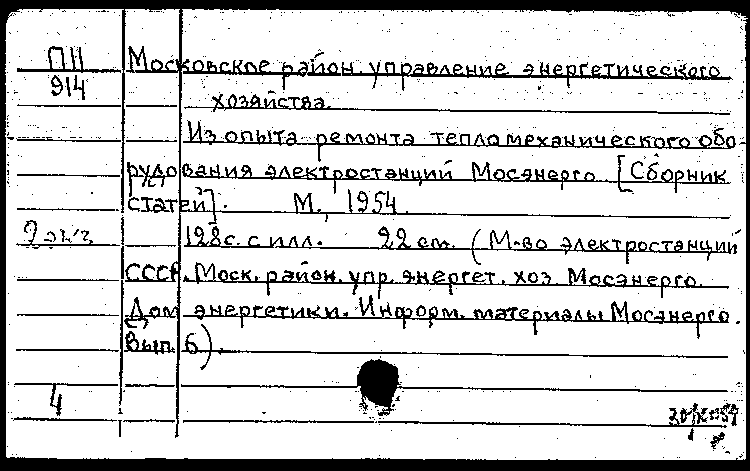 ПII Московское район. управление энергетического
914 хозяйства.
Из опыта ремонта тепломеханического обо-
рудования электростанций Мосэнерго. [Сборник
статей]. М., 1954.
2 экз 128с. с илл. 22 см. (М-во электростанций
СССР. Моск. район. упр. энергет. хоз. Мосэнерго.
Дом энергетики. Информ. материалы Мосэнерго.
Вып. 6).
4